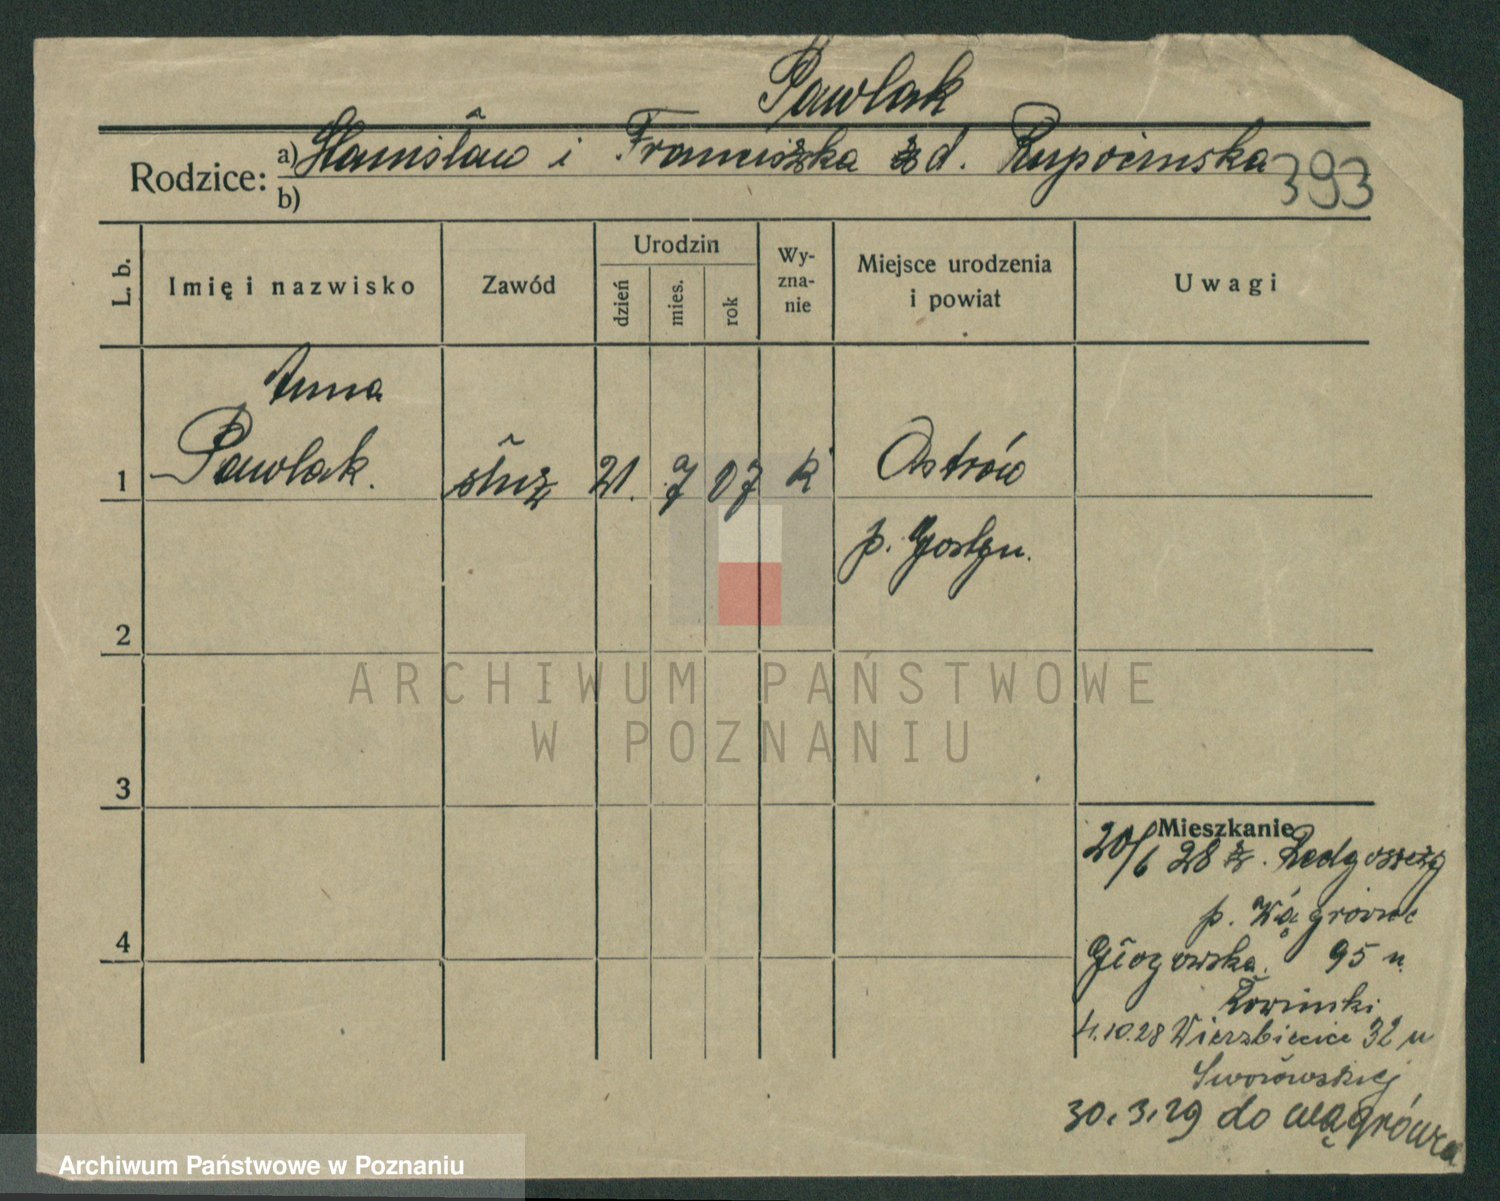 Pawlak
Rodzice: a) Stanisław i Franciszka z d. Rupocinska
b)
393
L. b. Imię i nazwisko Zawód Urodzin dzień mies. rok Wy-zna-nie Miejsce urodzenia i powiat Uwagi
Anna
1 Pawlak. służ 21. 7 07 k Ostrów
p. Gostyn.
2
3
4
Mieszkanie
20/6 28 z.
p. Wągrowiec
Głogowska. 95 u.
4.10.28 Wierzbięcice 32 u
30.3.29 do Wągrówca
ARCHIWUM PAŃSTWOWE
W POZNANIU
Archiwum Państwowe w Poznaniu